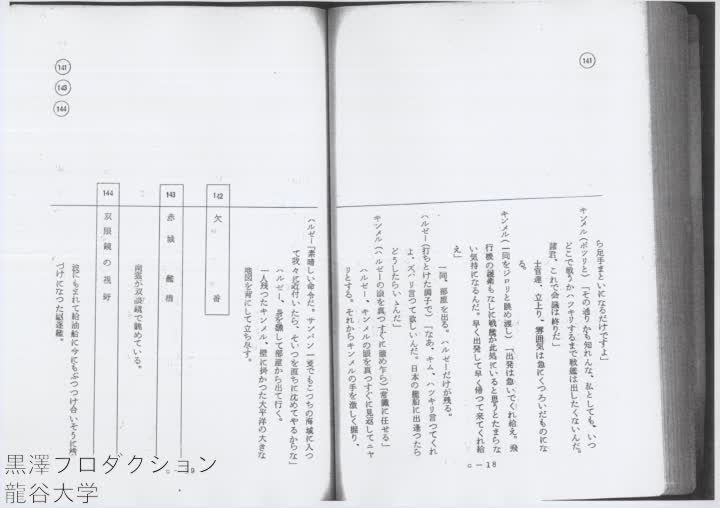 141
ら足手まといになるだけですよ」
キンメル(ポツリと)「その通りかも知れんな。私としても、いつ
どこで戦うかハツキリするまで戦艦は出したくないんだ。
諸君、これで会議は終りだ」
士官達、立上り、雰囲気は急にくつろいだものにな
る。
キンメル(一同をジロリと眺め渡し)「出発は急いでくれ給え。飛
行機の援護もなしに戦艦が此処にいると思うとたまらな
い気持になるんだ。早く出発して早く帰つて来てくれ給
え」
一同、部屋を出る。ハルゼーだけが残る。
ハルゼー(打ちとけた調子で)「なあ、キム、ハツキリ言つてくれ
よ、ズバリ言つて欲しいんだ。日本の艦船に出逢つたら
どうしたらいゝんだ」
キンメル(ハルゼーの眼を真つすぐに眺め乍ら)「常識に任せる」
ハルゼー、キンメルの顔を真つすぐに見返してニヤ
リとする。それからキンメルの手を激しく握り、
C－18
141
143
144
ハルゼー「素晴しい命令だ。サンパン一隻でもこつちの海域に入つ
て我々に近付いたら、そいつを直ちに沈めてやるからな」
ハルゼー、身を飜して部屋から出て行く。
一人残つたキンメル、壁に掛かつた太平洋の大きな
地図を背にして立ち尽す。
142 欠番
143 赤城 艦橋
南雲が双眼鏡で眺めている。
144 双眼鏡の視野
波にもまれて給油船に今にもぶつつけ合いそうに横
づけになつた駆逐艦。
9
黒澤プロダクション
龍谷大学